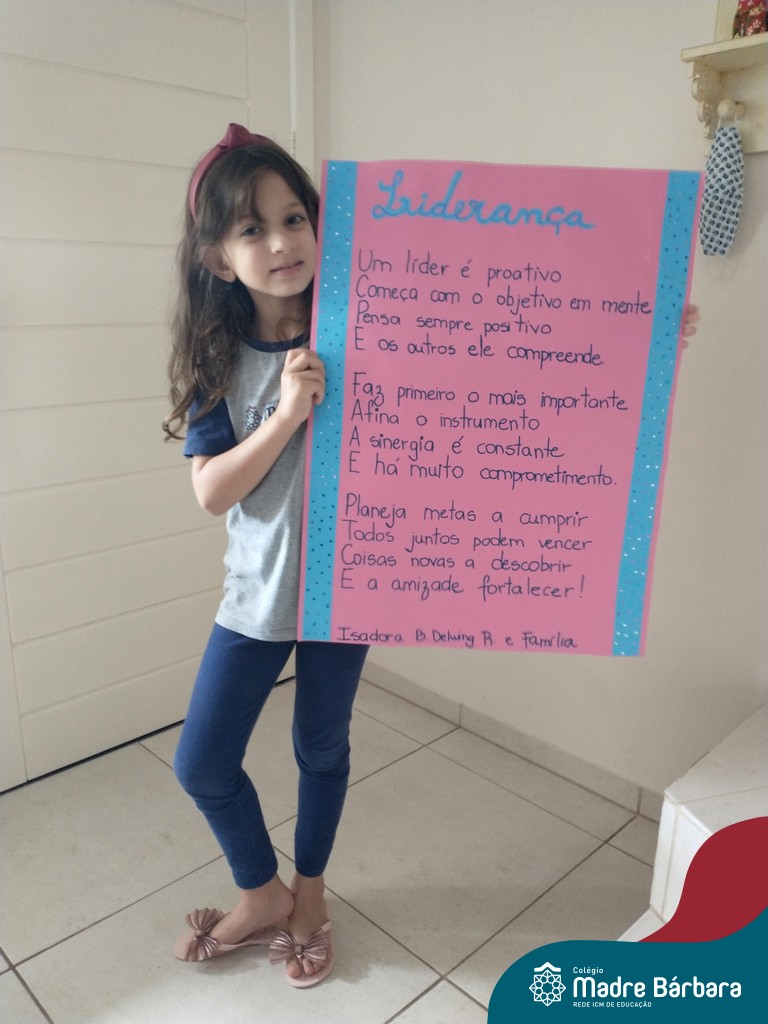 Liderança
Um líder é proativo
Começa com o objetivo em mente
Pensa sempre positivo
E os outros ele compreende.
Faz primeiro o mais importante
Afina o instrumento
A sinergia é constante
E há muito comprometimento.
Planeja metas a cumprir
Todos juntos podem vencer
Coisas novas a descobrir
E a amizade fortalecer!
Isadora B. Delwing R. e Família
Colégio
Madre Bárbara
REDE ICM DE EDUCAÇÃO